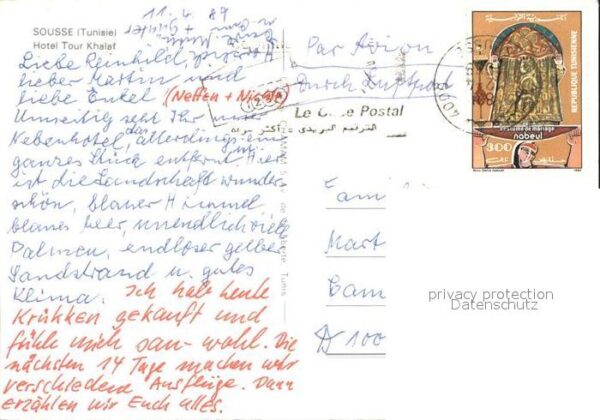 SOUSSE (Tunisie)
Hotel Tour Khalaf
11. 4. 89
Liebe Reinhild,
lieber Martin und
liebe Enkel (Neffen + Nichte)
Umseitig seht Ihr unser
Nebenhotel, das allerdings ein
ganzes Stück entfernt ist. Hier
ist die Landschaft wunder
schön, blauer Himmel
blaues Meer, unendlich viele
Palmen, endloser gelber
Sandstrand u. gutes
Klima. Ich habe heute
Krükken gekauft und
fühle mich sau-wohl. Die
nächsten 14 Tage machen wir
verschiedene Ausflüge. Dann
erzählen wir Euch alles.
Par Avion
Durch Luftpost
Le Code Postal
الترقيم البريدي
REPUBLIQUE TUNISIENNE
costume de mariage
nabeul
300
Fam
Mart
Cam
D 100
privacy protection
Datenschutz